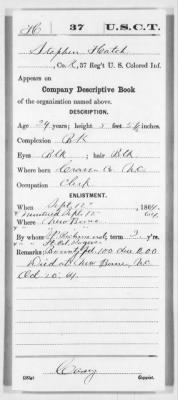 H 37 U.S.C.T.
Stephen Hatch
, Co. , 37 Reg't U. S. Colored Inf.
Appears on
Company Descriptive Book
of the organization named above.
DESCRIPTION.
Age 24 years; height 5 feet 5 inches.
Complexion Blk
Eyes Blk ; hair Blk
Where born Craven Co N.C.
Occupation Clerk
ENLISTMENT.
When Sept 12", 1864.
" Mustered Sept 12" 64.
Where New Berne
By whom ; term 3 y'rs.
Remarks: Bounty pd. 100 due 0.00
Died at New Berne, N.C
Oct 10. 64.
Copyist.